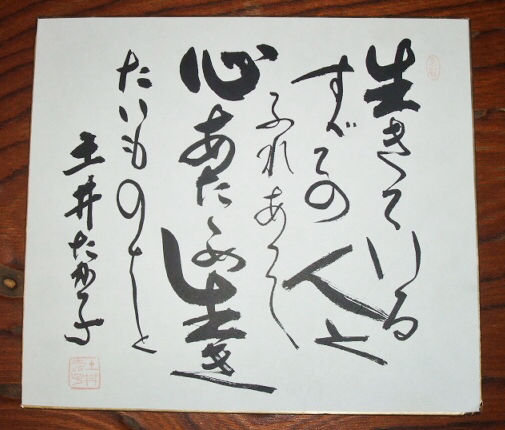 生きている
すべての人と
ふれあって
心あたゝめ生き
たいものよと
土井たか子